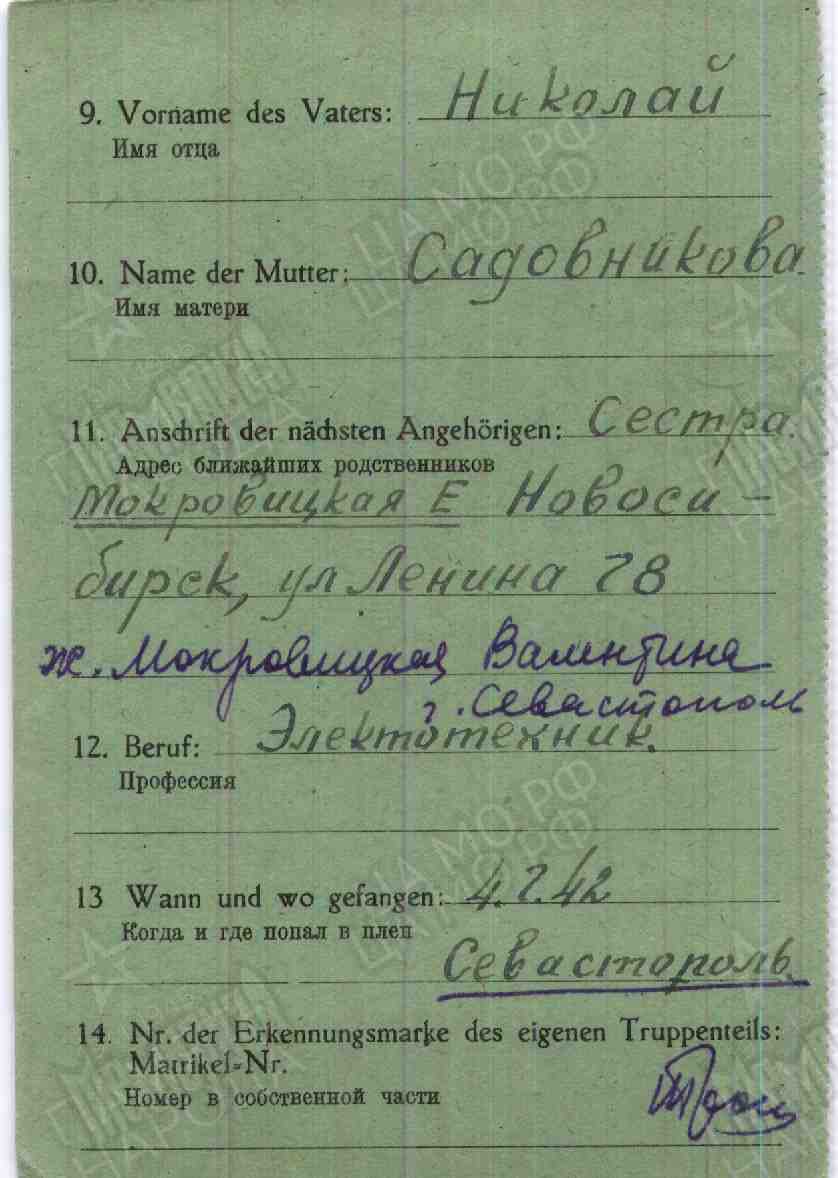 9. Vorname des Vaters: Николай
Имя отца
10. Name der Mutter: Садовникова
Имя матери
11. Anschrift der nächsten Angehörigen: Сестра.
Адрес ближайших родственников
Мокровицкая Е Новоси-
бирск, ул Ленина 78
ж. Мокровицкая Валентина
г. Севастополь
12. Beruf: Электотехник.
Профессия
13 Wann und wo gefangen: 4.7.42
Когда и где попал в плен
Севастополь
14. Nr. der Erkennungsmarke des eigenen Truppenteils:
Matrikel-Nr.
Номер в собственной части
ЦА МО РФ
ЦА МО РФ